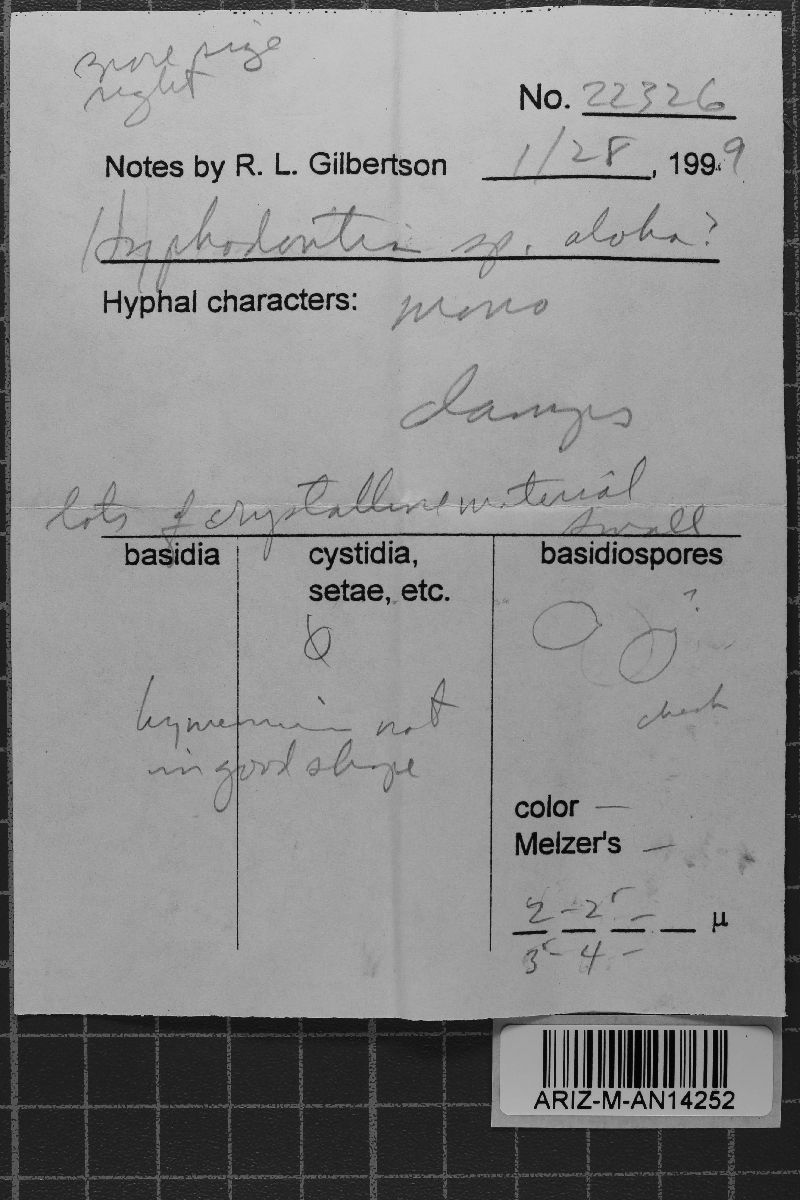 spore size
right
No. 22326
Notes by R. L. Gilbertson 1/28, 1999
Hyphodontia sp. aloha?
Hyphal characters: mono
clamps
lots of crystalline material
small
basidia
cystidia,
setae, etc.
basidiospores
?
check
hymenium not
in good shape
color —
Melzer's —
2-25 —
µ
35-4 —
ARIZ-M-AN14252